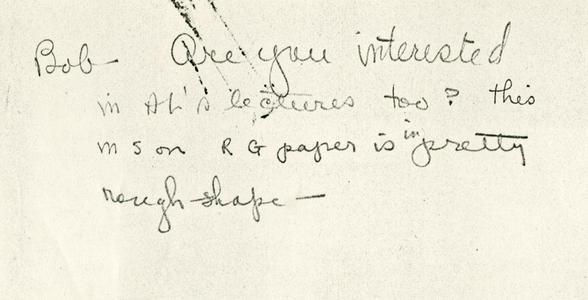 Bob- Are you interested
in Al's lectures too? this
ms on RG paper is in pretty
rough shape —